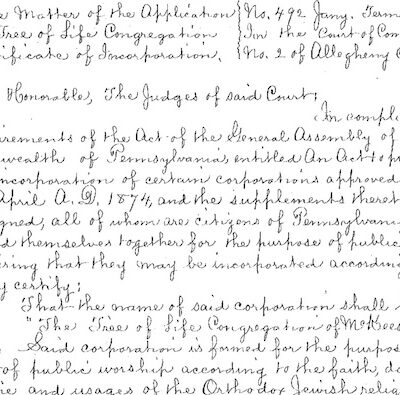 e Matter of the Application } No. 492 Jany. Term
Tree of Life Congregation } In the Court of Com
tificate of Incorporation. } No. 2 of Allegheny C
Honorable, The Judges of said Court;
In compli
irements of the Act of the General Assembly of
wealth of Pennsylvania, entitled An Act to p
incorporation of certain corporations approved
April A.D. 1874, and the supplements theret
igned, all of whom are citizens of Pennsylvania
d themselves together for the purpose of public
iring that they may be incorporated according
y certify;
That the name of said corporation shall
"The Tree of Life Congregation of McKees
Said corporation is formed for the purpos
of public worship according to the faith, do
ne and usages of the Orthodox Jewish relig